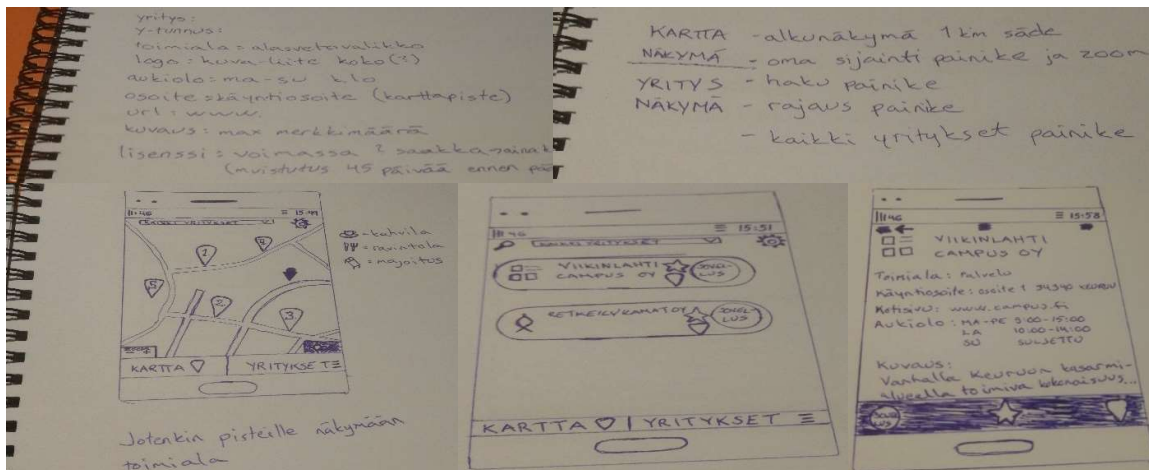 yritys:
y-tunnus:
toimiala = alasvetovalikko
logo: kuva-liite koko(?)
aukiolo: ma-su klo
osoite = käyntiosoite (karttapiste)
url: www.
kuvaus: max merkkimäärä
lisenssi: voimassa ? saakka
(muistutus 45 päivää ennen
KARTTA - alkunäkymä 1 km säde
NÄKYMÄ - oma sijainti painike ja zoom
YRITYS - haku painike
NÄKYMÄ - rajaus painike
- kaikki yritykset painike
4G
YRITYKSET
- kahvila
= ravintola
= majoitus
1
4
5
2
3
KARTTA YRITYKSET
Jotenkin pisteille näkymään
toimiala
4G 15:51
YRITYKSET
VIIKINLAHTI
CAMPUS OY
SOVEL-
LUS
SOVEL-
LUS
KARTTA | YRITYKSET
4G 15:58
VIIKINLAHTI
CAMPUS OY
Toimiala: Palvelu
Käyntiosoite: osoite 1 34540 KEURUU
Kotisivu: www.campus.fi
Aukiolo: MA-PE 9:00-15:00
LA 10:00-14:00
SU SULJETTU
Kuvaus:
Vanhalla Keuruun kasarmi-
alueella toimiva kokonaisuus...
SOVEL-
LUS